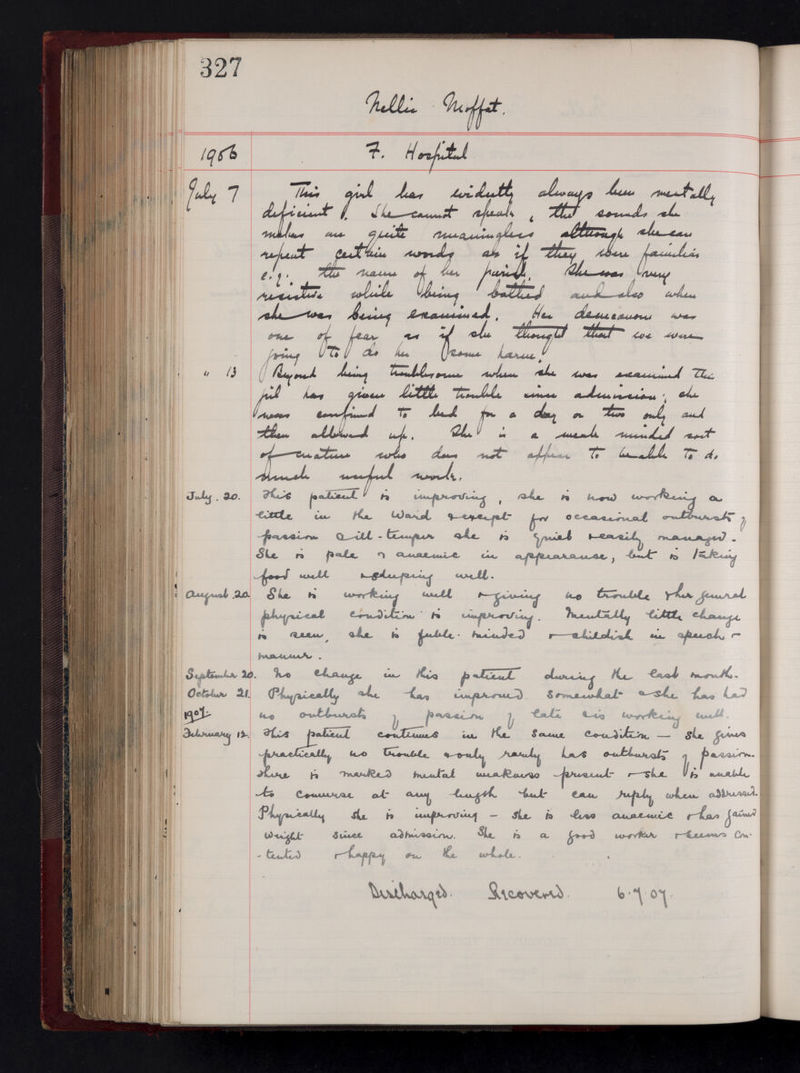 327
Nellie Moffat.
1906 F. Hospital
July 7 This girl has evidently always been mentally
deficient. She cannot speak, the sounds she
makes are quite meaningless although she can
repeat certain words as if they were familiar
e.g. the name of her parish. She was very
resistive while being bathed and also when
she was being examined. Her demeanour was
one of fear as if she thought that we were
going to do her some harm.
" 13 Beyond being troublesome when she was examined the
girl has given little trouble since admission; she
was confined to bed for a day or two only and
then allowed up. She is a weak minded sort
of creature who does not appear to be able to do
much useful work.
July. 20. This patient is improving, she is now working a
little in the Ward & except for occasional outbursts of
passion & ill-temper she is quiet & easily managed.
She is pale & anaemic in appearance, but is taking
food well & sleeping well.
August 20 She is working well & giving no trouble & her general
physical condition is improving. Mentally little change
is seen, she is feeble-minded & childish in speech &
manner.
September 20. No change in this patient during the last month.
October 21. Physically she has improved somewhat & she has had
1907 no outbursts of passion of late & is working well.
February 12. This patient continues in the same condition — she gives
practically no trouble & only rarely has outbursts of passion.
There is marked mental weakness present & she is unable
to converse at any length but can reply when addressed.
Physically she is improving - she is less anaemic & has gained
weight since admission. She is a good worker & seems con-
-tented & happy on the whole.
Discharged. Recovered. 6.7.07.